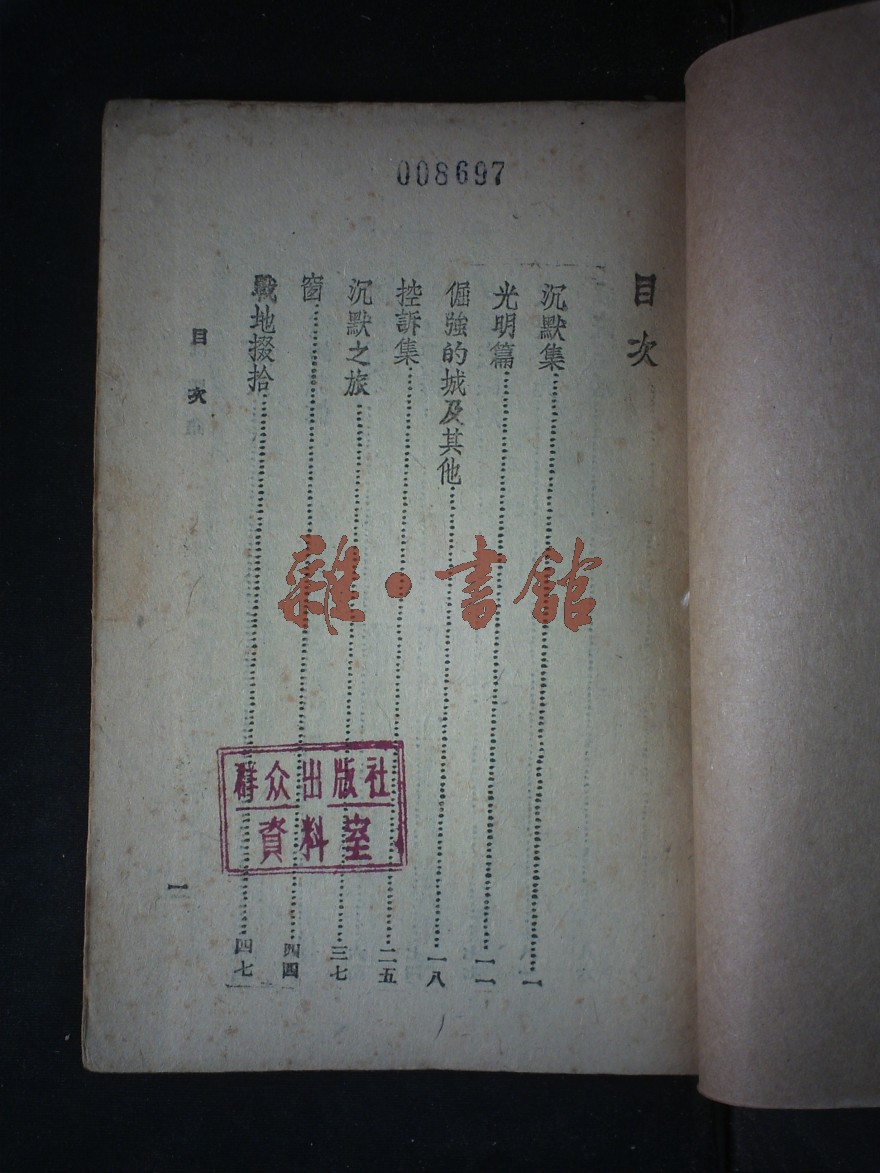 008697
目次
沉默集…………一
光明篇…………一一
倔強的城及其他…………一八
控訴集…………二五
沉默之旅…………三七
窗…………四四
戰地掇拾…………四七
目次
一
雜·書館
群众出版社
資料室